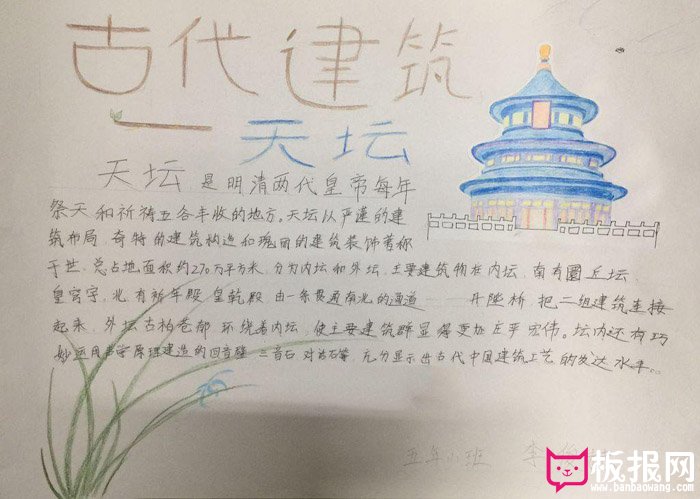 古代建筑
天坛
天坛 是明清两代皇帝每年
祭天和祈祷五谷丰收的地方。天坛从严谨的建
筑布局,奇特的建筑构造和瑰丽的建筑装饰著称
于世.总占地面积约270万平方米,分为内坛和外坛,主要建筑物在内坛,南有圜丘坛
皇穹宇,北有祈年殿 皇乾殿 由一条贯通南北的通道——丹陛桥 把二组建筑连接
起来.外坛古柏苍郁 环绕着内坛,使主要建筑群显得更加庄严宏伟。坛内还有巧
妙运用声学原理建造的回音壁 三音石 对话石等,充分显示出古代中国建筑工艺的发达水平。
五年小班 李
板报网
www.banbaowang.com